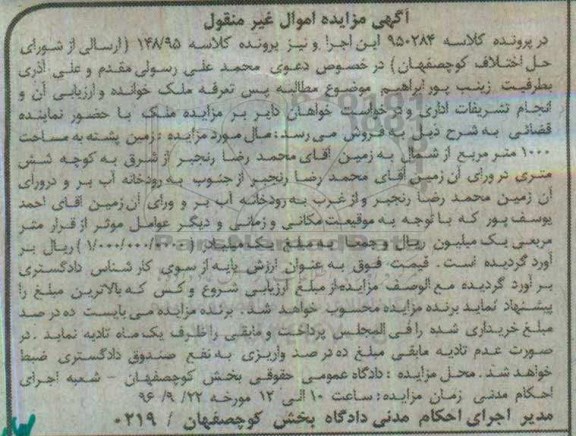 آگهی مزایده اموال غیر منقول
در پرونده کلاسه ۹۵۰۲۸۴ این اجرا و نیز پرونده کلاسه ۱۴۸/۹۵ (ارسالی از شورای
حل اختلاف کوچصفهان) در خصوص دعوی محمد علی رسولی مقدم و علی آذری
بطرفیت زینب پور ابراهیم موضوع مطالبه پس تعرفه ملک خوانده و ارزیابی آن و
انجام تشریفات اداری و درخواست خواهان دایر بر مزایده ملک با حضور نماینده
قضائی به شرح ذیل به فروش می رسد: مال مورد مزایده: زمین پشته به مساحت
۱۰۰۰ متر مربع از شمال به زمین آقای محمد رضا رنجبر از شرق به کوچه شش
متری در ورای آن زمین آقای محمد رضا رنجبر از جنوب به رودخانه آب بر و درورای
آن زمین محمد رضا رنجبر و از غرب به رودخانه آب بر و ورای آن زمین اقای احمد
یوسف پور که با توجه به موقیعت مکانی و زمانی و دیگر عوامل موثر از قرار متر
مربعی یک میلیون ریال و جمعا به مبلغ یک میلیارد (۱/۰۰۰/۰۰۰/۰۰۰) ریال بر
آورد گردیده است. قیمت فوق به عنوان ارزش پایه از سوی کارشناس دادگستری
بر آورد گردیده مع الوصف مزایده از مبلغ ارزیابی شروع و کسی که بالاترین مبلغ را
پیشنهاد نماید برنده مزایده محسوب خواهد شد. برنده مزایده می بایست ده در صد
مبلغ خریداری شده را فی المجلس پرداخت و مابقی را ظرف یک ماه تادیه نماید. در
صورت عدم تادیه مابقی مبلغ ده در صد واریزی به نفع صندوق دادگستری ضبط
خواهد شد. محل مزایده: دادگاه عمومی حقوقی بخش کوچصفهان - شعبه اجرای
احکام مدنی زمان مزایده: ساعت ۱۰ الی ۱۲ مورخه ۲۲/ ۹/ ۹۶
مدیر اجرای احکام مدنی دادگاه بخش کوچصفهان / ۰۲۱۹